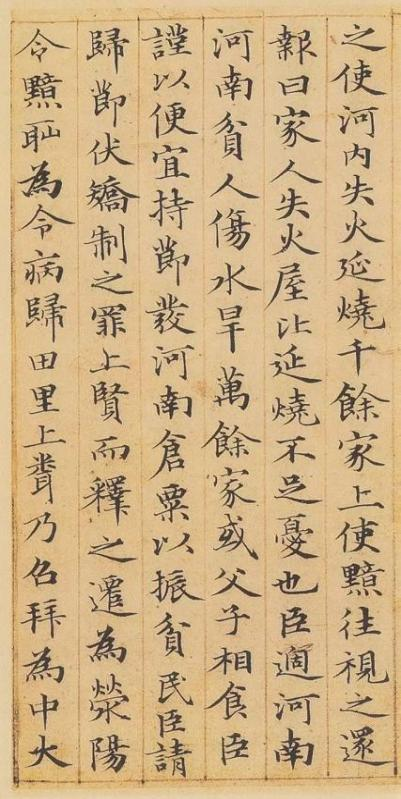 之使河内失火延燒千餘家上使黯往視之還
報曰家人失火屋比延燒不足憂也臣適河南
河南貧人傷水旱萬餘家或父子相食臣
謹以便宜持節發河南倉粟以振貧民臣請
歸節伏矯制之罪上賢而釋之遷為滎陽
令黯恥為令病歸田里上聞乃召拜為中大